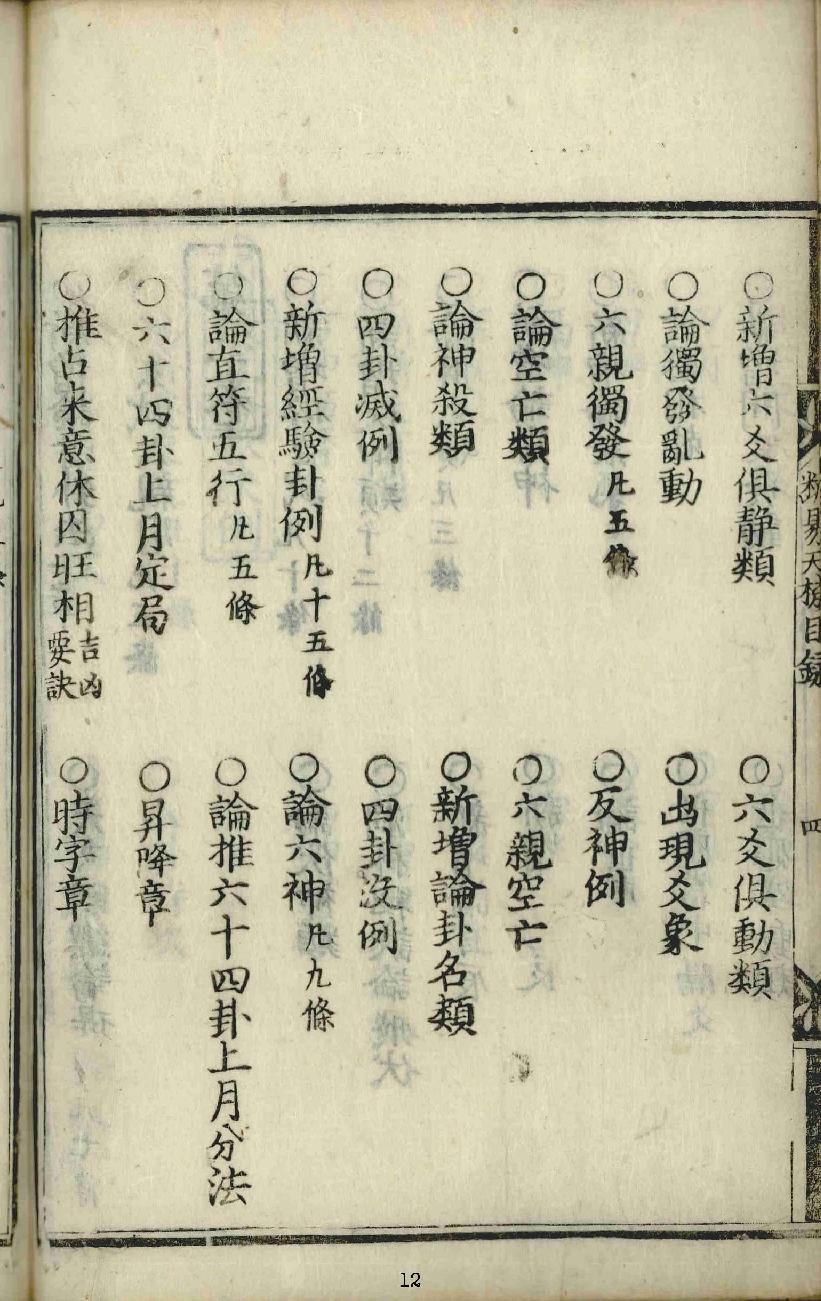 ○新增六爻俱静類　○六爻俱動類
○論獨發亂動　○出現爻象
○六親獨發凡五條　○反神例
○論空亡類　○六親空亡
○論神殺類　○新增論卦名類
○四卦滅例　○四卦沒例
○新增經驗卦例凡十五條　○論六神凡九條
○論直符五行凡五條　○論推六十四卦上月分法
○六十四卦上月定局　○昇降章
○推占来意休囚旺相吉凶要訣　○時字章
易天機目錄
四
12